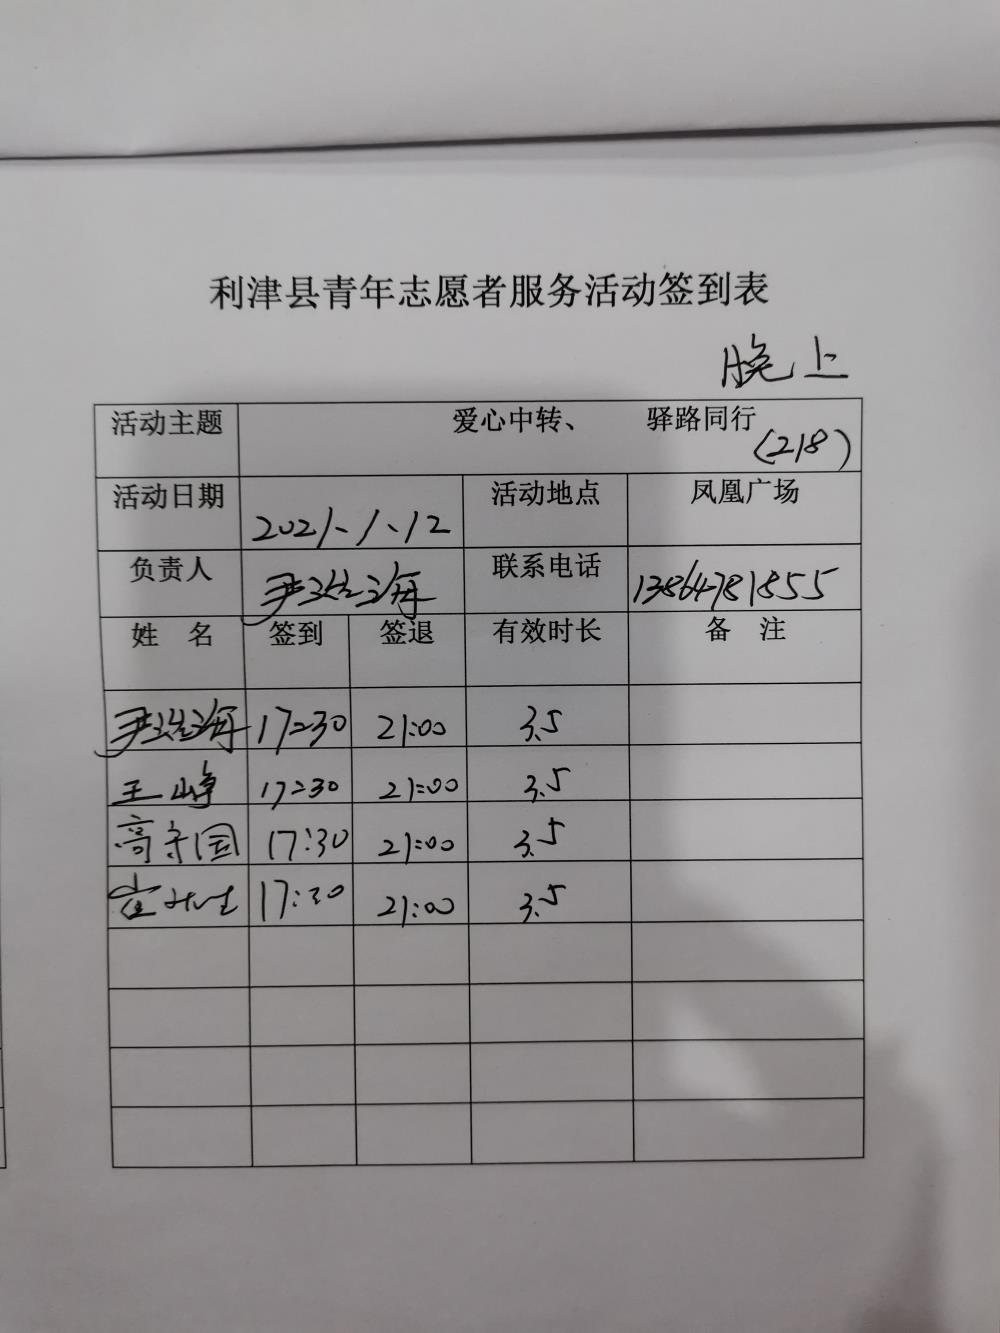 利津县青年志愿者服务活动签到表
晚上
活动主题 爱心中转、 驿路同行
(218)
活动日期 2021、1、12 活动地点 凤凰广场
负责人 尹海 联系电话 13864781855
姓 名 签到 签退 有效时长 备 注
尹海 17:30 21:00 3.5
王峥 17:30 21:00 3.5
高守国 17:30 21:00 3.5
崔 17:30 21:00 3.5